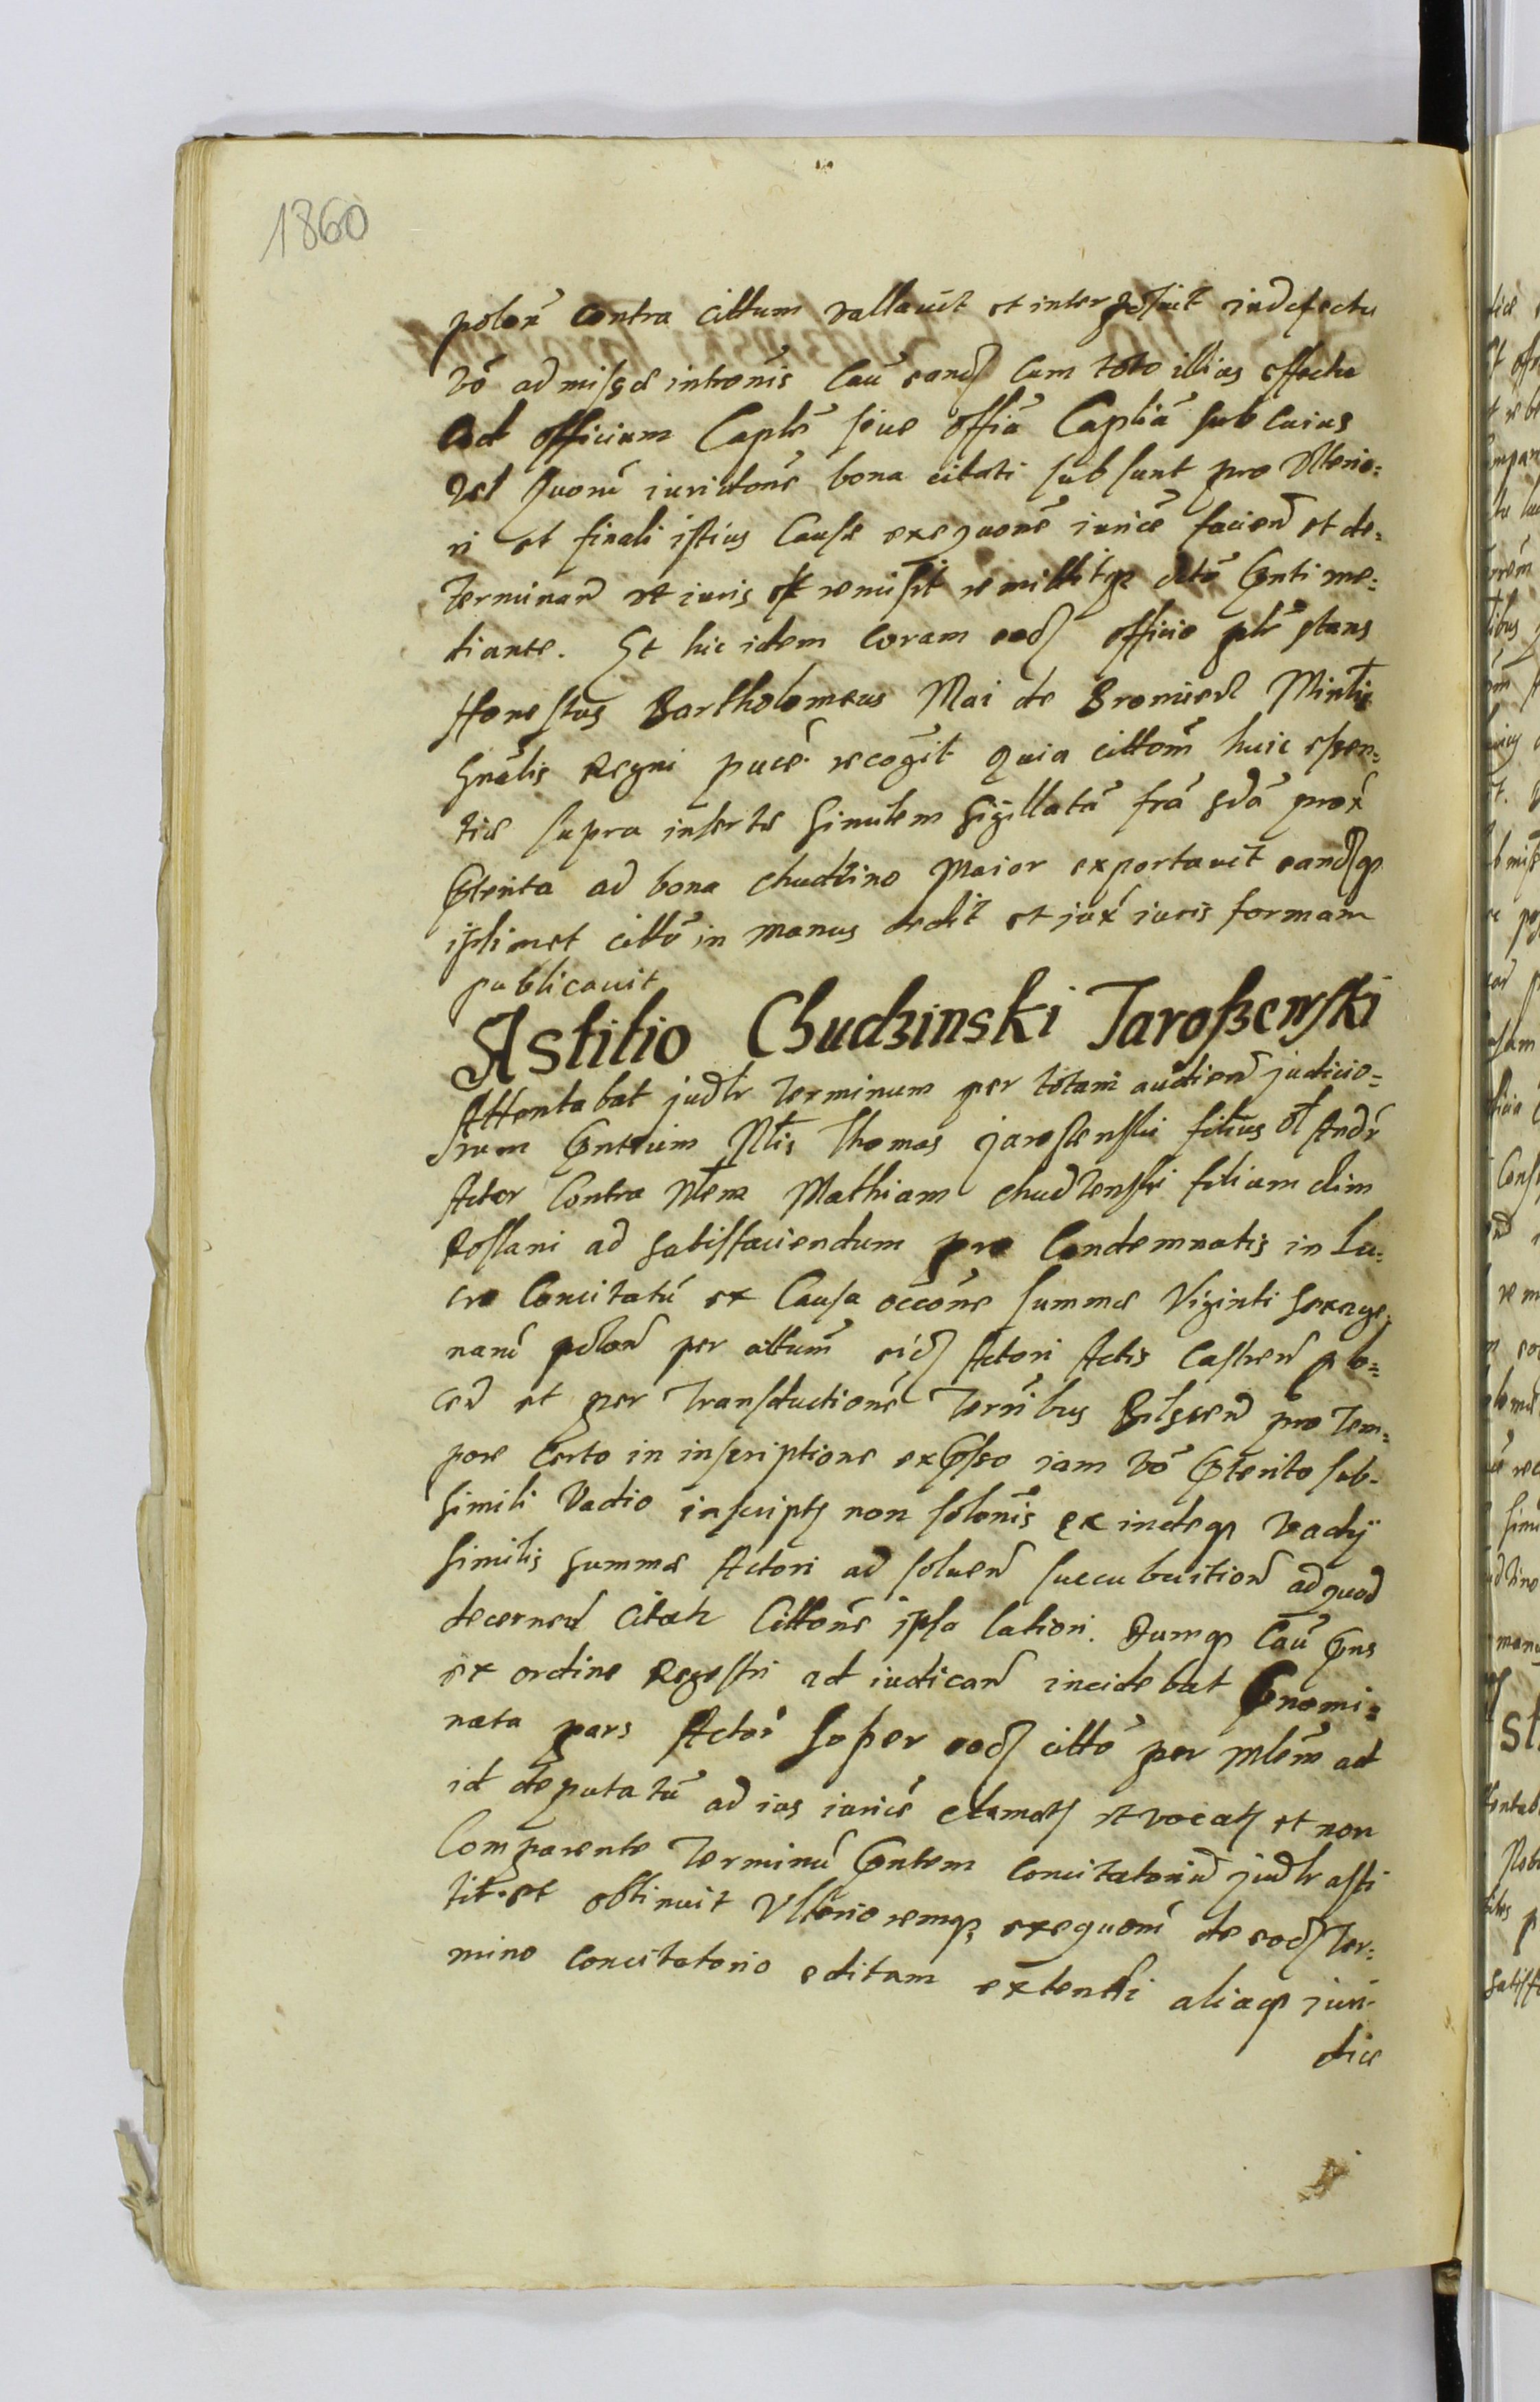 1860
polon̄ Contra cittum vallavit et interposuit in defectu
vō admissae intrōnis Cau eandȝ Cum toto illius effectu
Ad officium Captī sive offia Captia sub Cuius
Vel Quorū iuridtōne bona citati subsunt pro Ulterio=
ri et finali istius Causae exequōne iurice facien̄ et de=
terminan̄ ut iuris est remisit remittitqȝ
diante. Et hic idem Coram eodȝ officio ptr stans
Honestus Bartholomeus Mai de Bromierz Mintis
Gnalis Regni recogit quia cittom̄ huic
tiae supra insertae Similem Sigillatā frā prox̄
pterita ad bona Chudzino Maior exportavit eandȝqȝ
ipsimet cittō in manus dedit et jux̄ iuris formam
publicavit
Astitio Chudzinski Jaroszewski
Attentabat judtr terminum per totam audien̄ judicio=
rum pntium Nlis Thomas jaroszewski filius ol Andr
Actor Contra Nlem Mathiam Chudzenski filium olim
Roslani ad satisfaciendum pro Condemnatis in Lu=
cro Concitatū ex Causa occōne summae Viginti sexage=
narū polon̄ per cittum eidȝ Actori Actis Castren̄ plo=
cen̄ et per transductionē terribus Bilscen̄ pro tem=
pore Certo in inscriptione expsso iam vō pterito sub
simili Vadio inscriptȝ non solonis ex indeqȝ vadij
similis summae Actori ad solven̄ succubuition̄ ad quod
decernen̄ Citatȝ Cittone ipsa latiori. Dumqȝ Cau pns
ex ordine Regestri ad iudican̄ incidebat pnomi=
nata pars Actor̄ super eodȝ cittō per Mlem ad
id deputatū ad ius iurice clamatȝ et vocatȝ et non
Comparente Terminū pntem Concitatoriū judtr asti
tit et obtinuit Ulterioremqȝ exequōni de eodȝ ter=
mino Concitatorio editam extendi aliaqȝ juri
dice